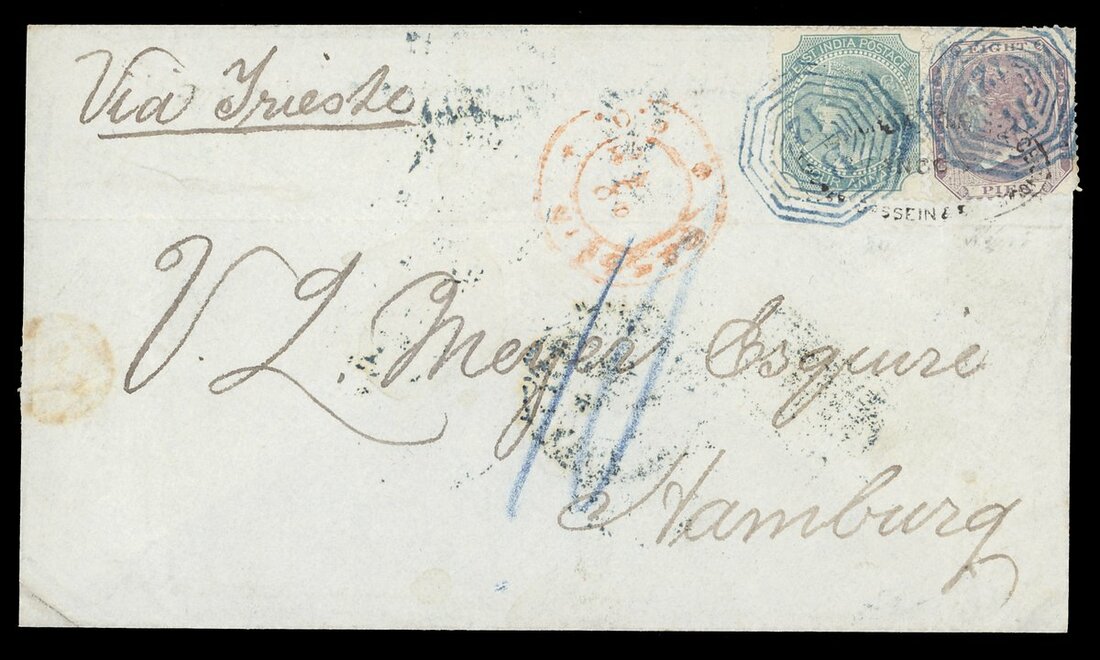 Via Trieste
EAST INDIA POSTAGE
EIGHT
PIES
V. L Meyer Esquire
Hamburg